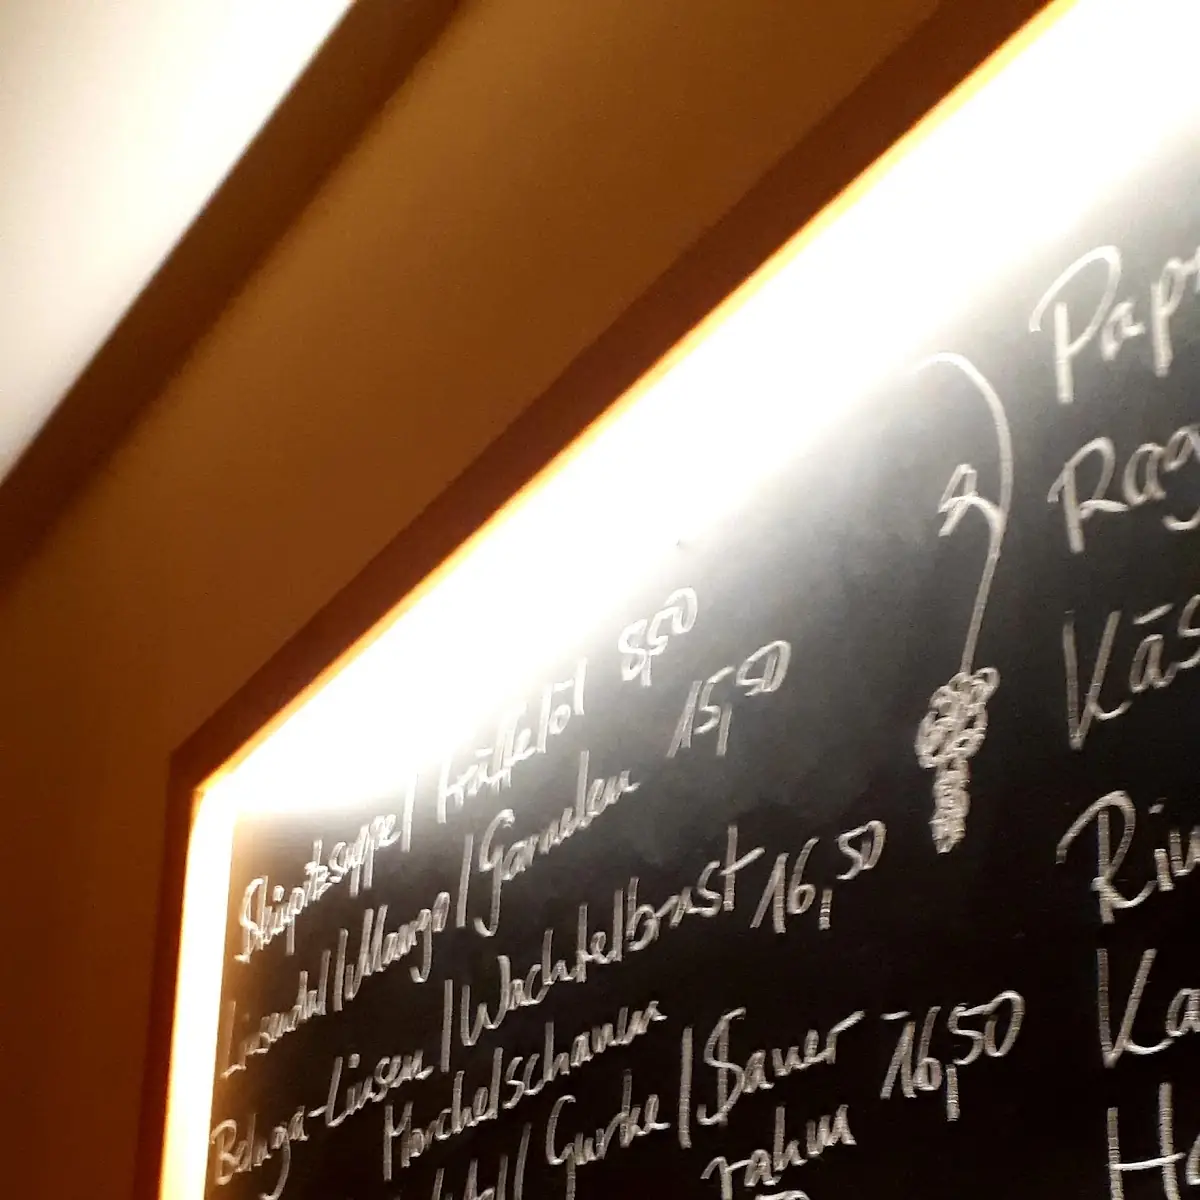 Sküpitzsuppe/ Trüffelöl 8,50
/Mango/Garnelen 15,50
Beluga-Linsen/Wachtelbrust 16,50
Morchelschaum
/Gurke/Sauer- 16,50
rahm
Pap
Rag
Käs
Rin
Ka